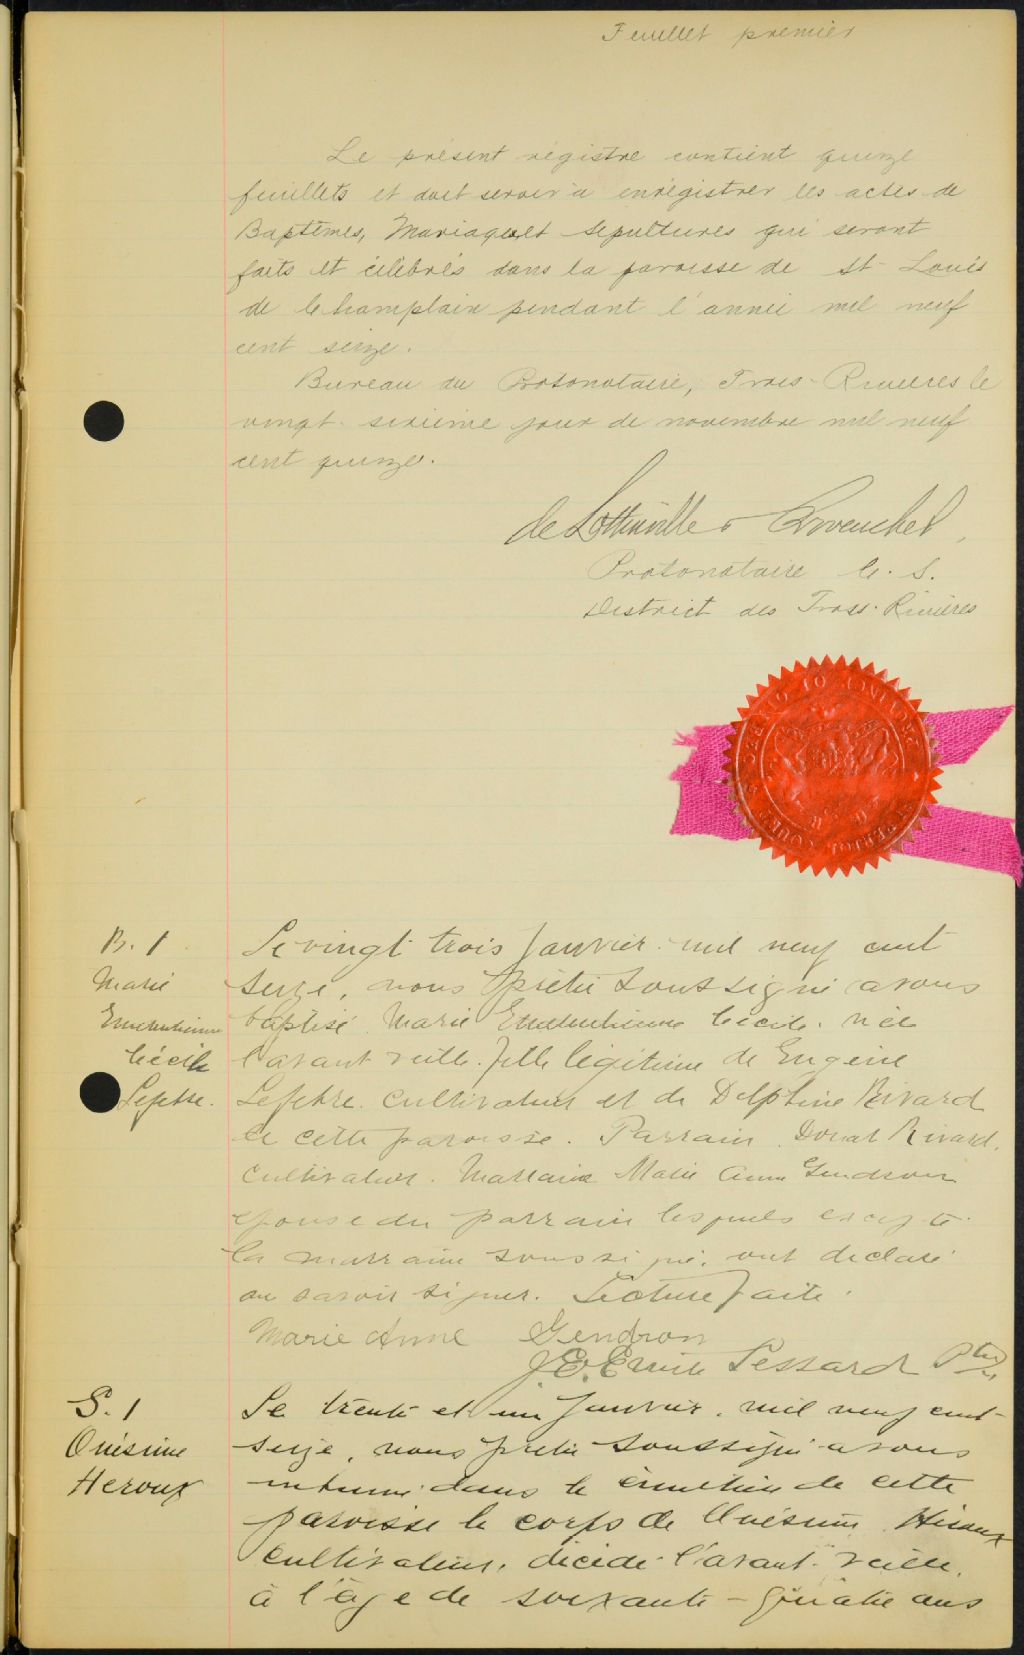 Feuillet premier
Le présent régistre contient quinze
feuillets et doit servir à enrégistrer les actes de
Baptêmes, Mariages et Sépultures qui seront
faits et célébrés dans la paroisse de St Louis
de Champlain pendant l'année mil neuf
cent seize.
Bureau du Protonotaire, Trois-Rivières le
vingt-sixième jour de novembre mil neuf
cent quinze.
de Lottinville &
Protonotaire C. S.
District des Trois-Rivières
B. 1
Marie
Cécile
Lefebre.
Le vingt-trois Janvier mil neuf cent
seize, nous prêtre soussigné avons
baptisé Marie Cécile. née
l'avant veille. fille légitime de Eugène
Lefebre. cultivateur et de Delphine Rivard
de cette paroisse. Parrain Donat Rivard.
cultivateur. Marraine Marie Anne Gendron
épouse du parrain lesquels excepté
la marraine soussigné. ont déclaré
ne savoir signer. Lecture faite.
Marie Anne Gendron
J. E. Emile Lessard Ptre
S. 1
Onésime
Heroux
Le trente et un Janvier. mil neuf cent
seize, nous prêtre soussigné avons
inhumé dans le cimetière de cette
paroisse le corps de Onésime Héroux
cultivateur. décédé l'avant-veille.
à l'âge de soixante-quatre ans